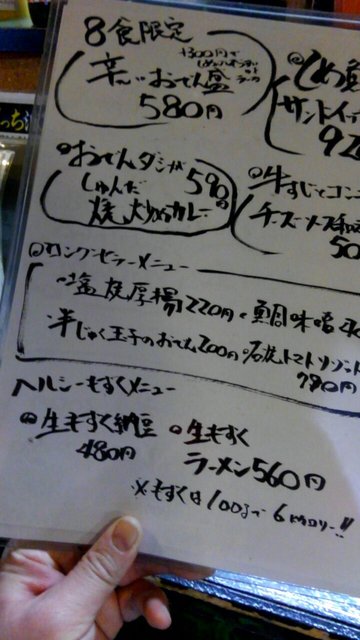 8食限定
+300円で
辛〜いおでん盛
580円
しめ鯖
サンドイッチ
92
おでんダシが
しゅんだ 590円
焼きカレー
牛すじとコン
チーズ
50
ロングセラーメニュー
塩焼厚揚220円・鯛味噌
半じゅく玉子のおでん200円 石焼トマトリゾット
780円
ヘルシーもずくメニュー
生もずく納豆
480円
生もずく
ラーメン560円
※もずくは100gで6カロリー!!